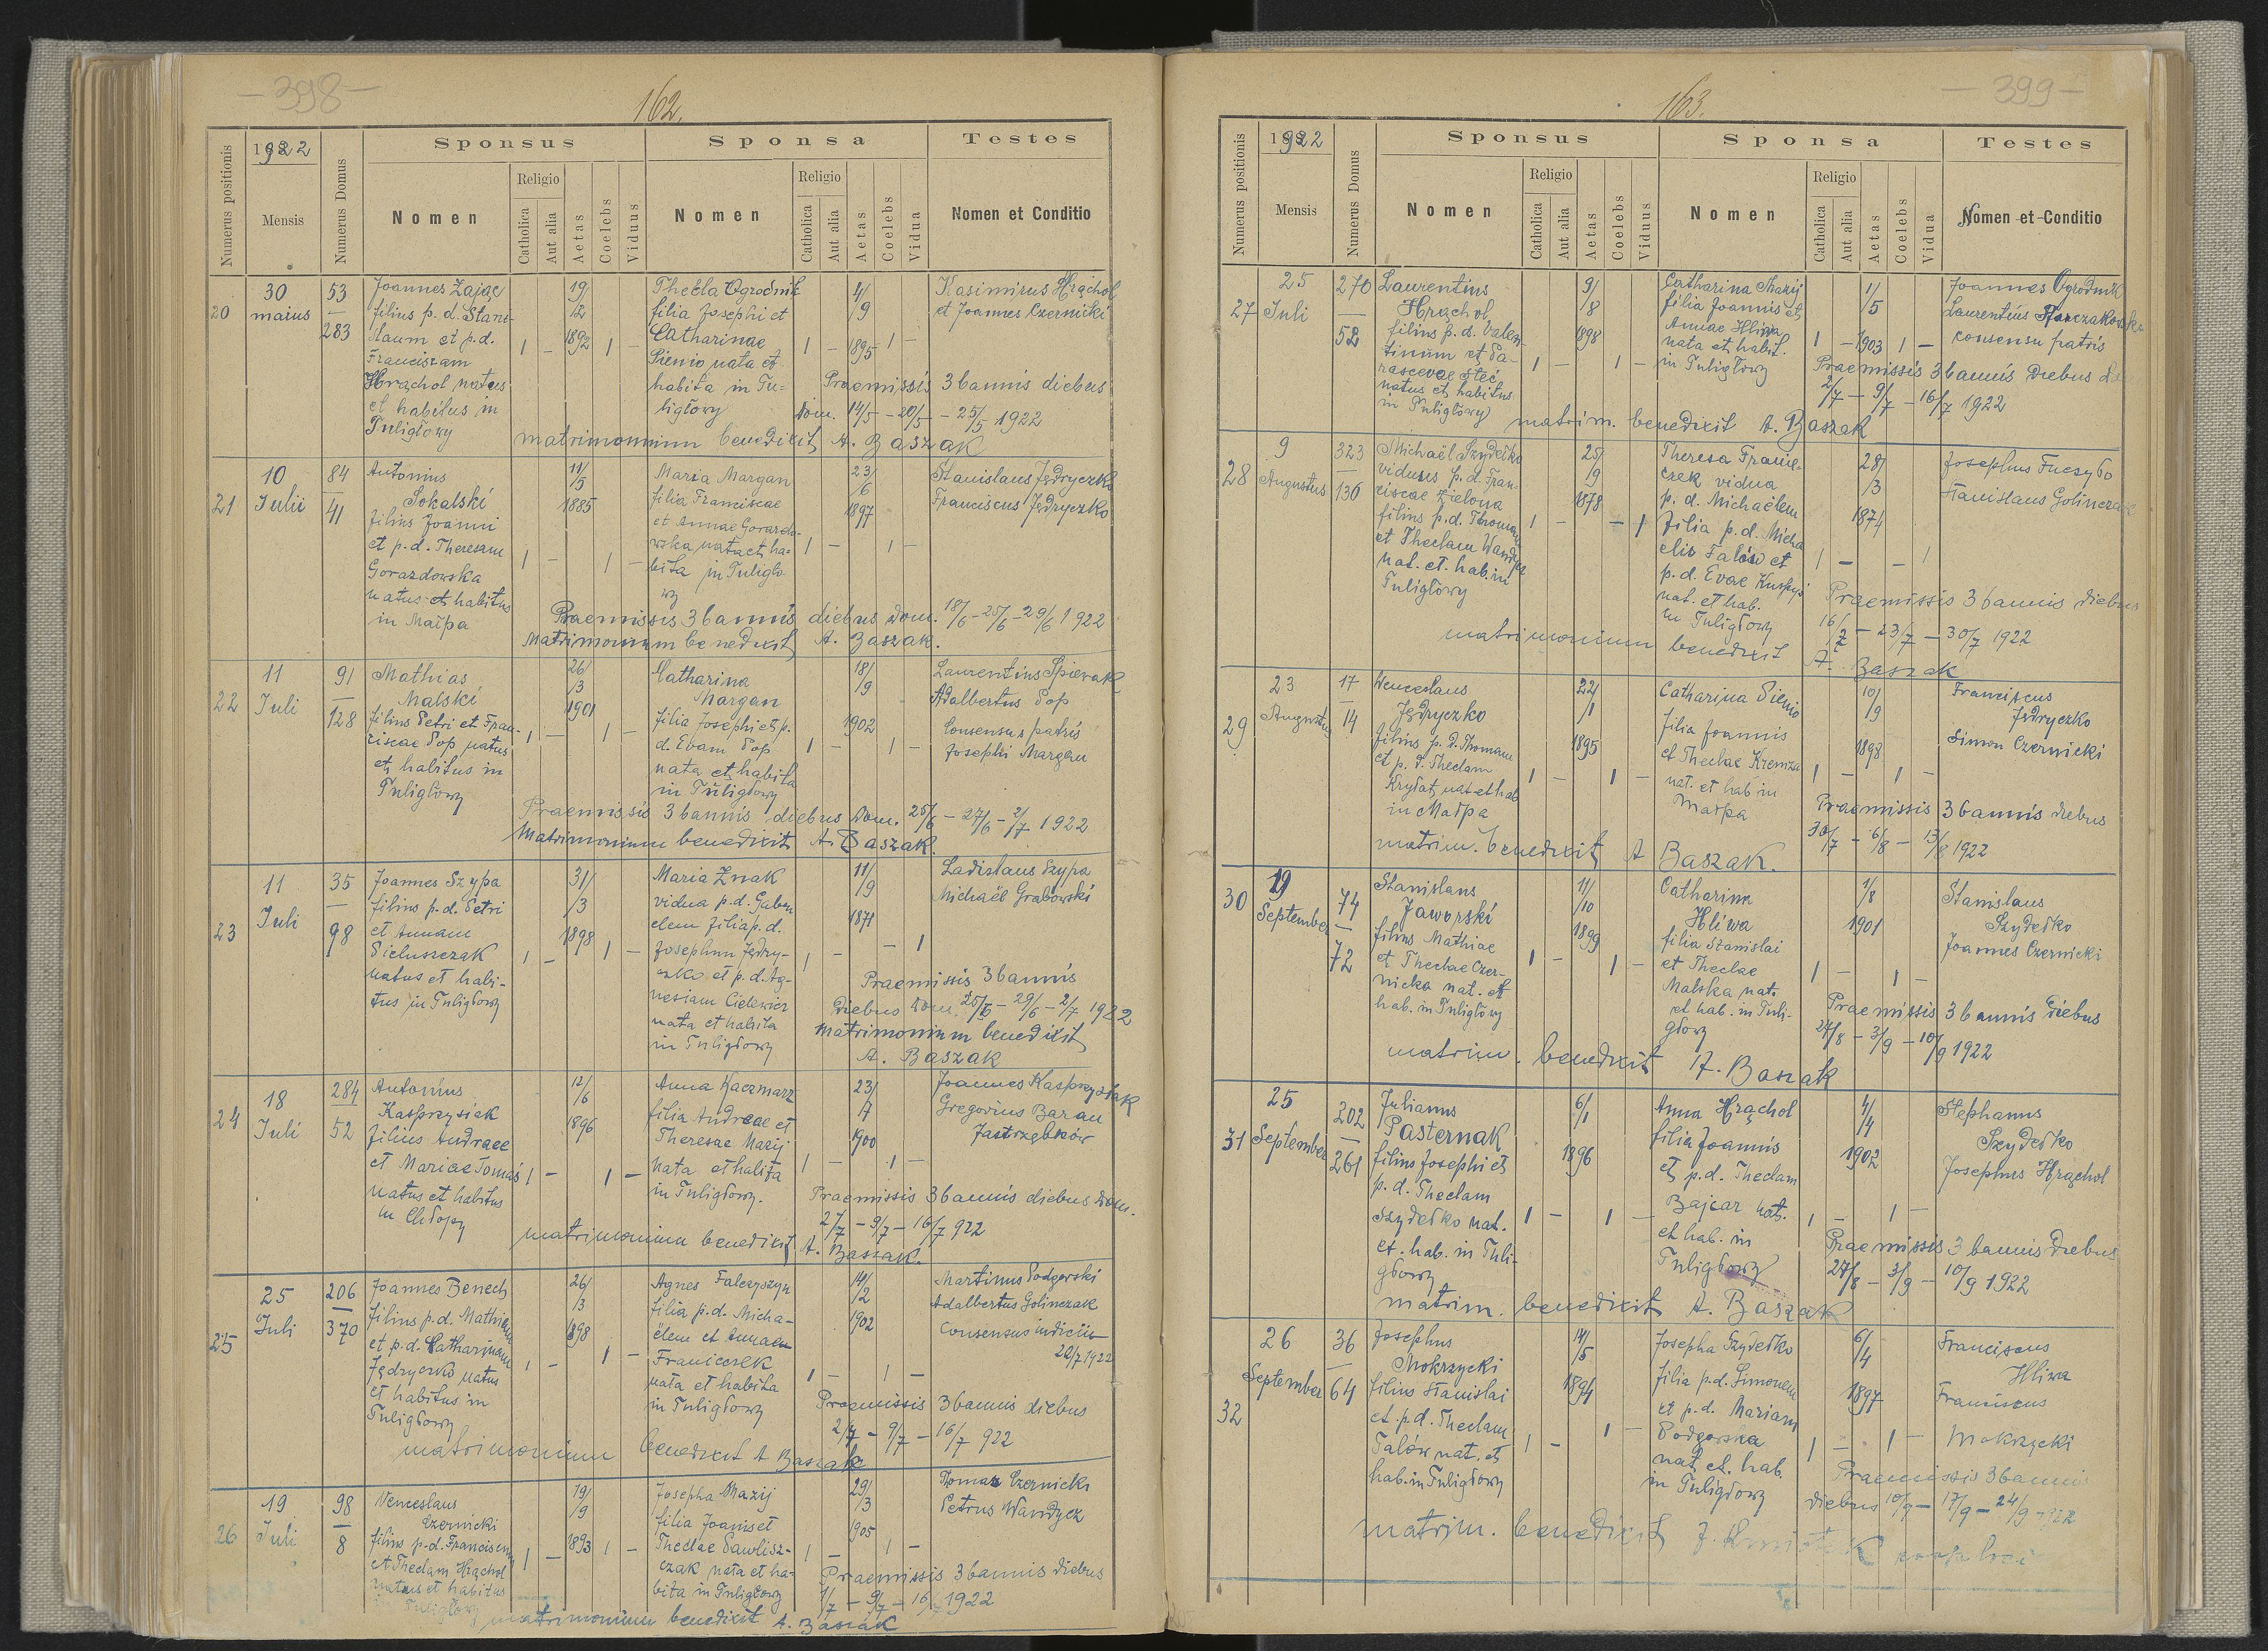 - 398 -
162.
Numerus positionis
1922
Mensis
Numerus Domus
Sponsus
Nomen
Religio
Catholica
Aut alia
Aetas
Coelebs
Viduus
Sponsa
Nomen
Religio
Catholica
Aut alia
Aetas
Coelebs
Vidua
Testes
Nomen et Conditio
20
30
maius
53
283
Joannes Zając
filius p. d. Stani-
slaum et p.d.
Franciscam
Hrąchol natus
et habitus in
Tuligłowy
1 -
19/
/2
1892
1 -
Thecla Ogrodnik
filia Josephi et
Catharinae
Sienio nata et
habita in Tu-
ligłowy
1 -
4/
/9
1895
1 -
Kasimirus Hrąchol
et Joannes Czernicki
Praemissis 3 bannis diebus
Dom. 14/5 - 20/5 - 25/5 1922
matrimonium benedixit A. Baszak
21
10
Julii
84
41
Antonius
Sokalski
filius Joanni
et p.d. Theresam
Gorazdowska
natus et habitus
in Małpa
1 -
11/
/5
1885
1 -
Maria Margan
filia Franciscae
et Annae Gorazdo-
wska nata et ha-
bita in Tuligło
wy
1 -
23/
/6
1897
1 -
Stanislaus Jędryczko
Franciscus Jędryczko
Praemissis 3 bannis diebus Dom. 18/6 - 25/6 - 29/6 1922
Matrimonium benedixit A. Baszak.
22
11
Juli
91
128
Mathias
Malski
filius Petri et Fran-
ciscae Pop natus
et habitus in
Tuligłowy
1 -
26/
/3
1901
1 -
Catharina
Margan
filia Josephi et p.
d. Evam Pop
nata et habita
in Tuligłowy
1 -
18/
/9
1902
1 -
Laurentius Spiewak
Adalbertus Pop
Consensus patris
Josephi Margan
Praemissis 3 bannis diebus Dom. 25/6 - 27/6 - 2/7 1922
Matrimonium benedixit A. Baszak.
23
11
Juli
35
98
Joannes Szypa
filius p.d. Petri
et Annam
Pieluszczak
natus et habi-
tus in Tuligłowy
1 -
31/
/3
1898
1 -
Maria Znak
vidua p.d. Gabri
elem filia p.d.
Josephum Jędry-
czko et p.d. Ag-
nesiam Cielewicz
nata et habita
in Tuligłowy
1 -
11/
/9
1871
- 1
Ladislaus Szypa
Michaël Grabowski
Praemissis 3 bannis
Diebus Dom. 25/6 - 29/6 - 2/7 1922
Matrimonium benedixit
A. Baszak
24
18
Juli
284
52
Antonius
Kasprzysiak
filius Andraee
et Mariae Tomaś
natus et habitus
in Chłopy
1 -
12/
/6
1896
1 -
Anna Kaczmarz
filia Andreae et
Theresae Mazij
nata et habita
in Tuligłowy.
1 -
23/
/7
1900
1 -
Joannes Kasprzysiak
Gregorius Baran
Jastrzębków
Praemissis 3 bannis diebus Dom.
2/7 - 9/7 - 16/7 922
matrimonium benedixit A. Baszak.
25
25
Juli
206
370
Joannes Benech
filius p.d. Mathiam
et p.d. Catharinam
Jędryczko natus
et habitus in
Tuligłowy
1 -
26/
/3
898
1 -
Agnes Falczyszyn
filia p.d. Micha-
ëlem et Annam
Franiczek
nata et habita
in Tuligłowy
1 -
14/
/2
1902
1 -
Martinus Podgorski
Adalbertus Golinczak
Consensus indiciu
20/7 1922
Praemissis 3 bannis diebus
2/7 - 9/7 - 16/7 922
matrimonium benedixit A Baszak
26
19
Juli
98
8
Venceslaus
Czernicki
filius p.d. Franciscum
et Theclam Hrąchol
natus et habitus
in Tuligłowy
1 -
19/
/9
1893
1 -
Josepha Mazij
filia Joannis et
Theclae Pawlisz-
czak nata et ha-
bita in Tuligłowy
1 -
29/
/3
1905
1 -
Tomasz Czernicki
Petrus Wandycz
Praemissis 3 bannis diebus
/7 - 9/7 - 16/7 1922
matrimonium benedixit A. Baszak
- 399 -
163.
Numerus positionis
1922
Mensis
Numerus Domus
Sponsus
Nomen
Religio
Catholica
Aut alia
Aetas
Coelebs
Viduus
Sponsa
Nomen
Religio
Catholica
Aut alia
Aetas
Coelebs
Vidua
Testes
Nomen et Conditio
27
25
Juli
270
52
Laurentius
Hrąchol
filius p.d. Valen-
tinum et Pa-
rascevae Steć
natus et habitus
in Tuligłowy
1 -
9/
/8
1898
1 -
Catharina Mazij
filia Joannis et
Annae Hliwa
nata et habit.
in Tuligłowy
1 -
1/
/5
1903
1 -
Joannes Ogrodnik
Laurentius
consensu patris
Praemissis 3 bannis Diebus
2/7 - 9/7 - 16/7 1922
matrim. benedixit A. Baszak
28
9
Augustus
323
136
Michaël Szydełko
viduus p.d. Fran-
ciscae Zielona
filius p.d. Thomam
et Theclam Wandycz
nat. et. hab. in
Tuligłowy
1 -
25/
/9
1878
- 1
Theresa Franie-
czek vidua
p. d. Michaëlem
filia p.d. Micha
elis Falów et
p.d. Evae
nat. et hab.
in Tuligłowy
1 -
28/
/3
1874
- 1
Josephus Fuczyło
Stanislaus Golinczak
Praemissis 3 bannis diebus
16/7 - 23/7 - 30/7 1922
matrimonium benedixit
A. Baszak
29
23
Augustus
17
14
Wenceslaus
Jędryczko
filius p.d. Thomam
et p. d. Theclam
nat et hab
in Małpa
1 -
22/
/1
1895
1 -
Catharina Sienio
filia Joannis
et Theclae Kremza
nat. et hab in
Małpa
1 -
10/
/9
1898
1 -
Franciscus
Jędryczko
Simon Czernicki
Praemissis 3 bannis diebus
30/7 - 6/8 - 13/8 1922
matrim. benedixit A Baszak.
30
19
September
74
72
Stanislaus
Jaworski
filius Mathiae
et Theclae Czer-
nicka nat. et
hab. in Tuligłowy
1 -
11/
/10
1899
1 -
Catharina
Hliwa
filia Stanislai
et Theclae
Malska nat.
et hab. in Tuli-
głowy
1 -
1/8
1901
1 -
Stanislaus
Szydełko
Joannes Czernicki
Praemissis 3 bannis diebus
27/8 - 3/9 - 10/9 1922
matrim. benedixit A. Baszak
31
25
September
202
261
Julianus
Pasternak
filius Josephi et
p.d. Theclam
Szydełko nat.
et. hab. in Tuli-
głowy
1 -
6/
/1
1896
1 -
Anna Hrąchol
filia Joannis
et p.d. Theclam
Bajcar nat.
et hab. in
Tuligłowy
1 -
4/
/4
1902
1 -
Stephanus
Szydełko
Josephus Hrąchol
Praemissis 3 bannis Diebus
27/8 - 3/9 - 10/9 1922
matrim. benedixit A. Baszak
32
26
September
36
64
Josephus
Mokrzycki
filius Stanislai
et. p.d. Theclam
Falów nat. et
hab. in Tuligłowy
1 -
14/
/5
1894
1 -
Josepha Szydełko
filia p.d. Simonem
et p.d. Mariam
Podgorska
nat. et. hab.
in Tuligłowy
1 -
6/
/4
1897
1 -
Franciscus
Hliwa
Franciscus
Mokrzycki
Praemissis 3 banni
diebus 10/9 - 17/9 - 24/9 - 922
matrim. benedixit J.